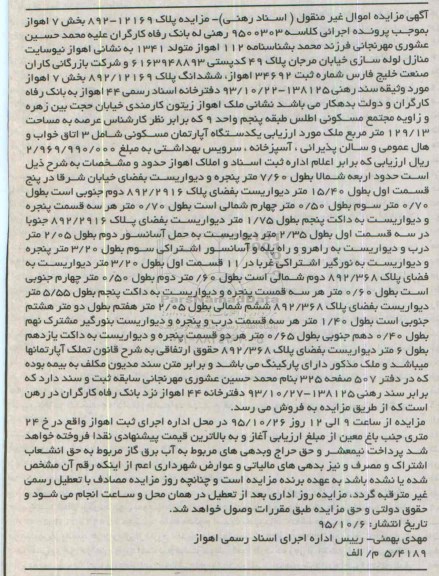 آگهی مزایده اموال غیر منقول ( اسـناد رهنـی)- مزایده پلاک ۱۲۱۶۹-۸۹۲ بخش ۷ اهواز
بموجب پرونده اجرائی کلاسه ۹۵۰۰۳۰۳ رهنی له بانک رفاه کارگران علیه محمد حسین
عشوری مهرنجانی فرزند محمد بشناسنامه ۱۱۲ اهواز متولد ۱۳۴۱ به نشانی اهواز نیوسایت
منازل لوله سازی خیابان مرجان پلاک ۴۹ کدپستی ۶۱۶۳۹۴۸۸۹۳ و شرکت بازرگانی کاران
صنعت خلیج فارس شماره ثبت ۳۴۶۹۲ اهواز، ششدانگ پلاک ۸۹۲/۱۲۱۶۹ بخش ۷ اهواز
مورد وثیقه سند رهنی ۱۳۸۱۲۵-۹۳/۱۰/۲۲ دفترخانه اسناد رسمی ۴۴ اهواز به بانک رفاه
کارگران و دولت بدهکار می باشد نشانی ملک اهواز زیتون کارمندی خیابان حجت بین زهره
و زاویه مجتمع مسکونی اطلس طبقه پنجم واحد ۹ که برابر نظر کارشناس عرصه به مساحت
۱۲۹/۱۳ متر مربع ملک مورد ارزیابی یکدستگاه آپارتمان مسکونی شامل ۳ اتاق خواب و
هال عمومی و سـالن پذیرائی ، آسپزخانه ، سرویس بهداشتی به مبلغ ۲/۹۶۹/۹۹۰/۰۰۰
ریال ارزیابی که برابر اعلام اداره ثبت اسـناد و املاک اهواز حدود و مشخصات به شرح ذیل
است حدود اربعه شمالا بطول ۷/۶۰ متر پنجره و دیواریست بفضای خیابان شـرقا در پنج
قسـمت اول بطول ۱۵/۴۰ متر دیواریست بفضای پلاک ۸۹۲/۲۹۱۶ دوم جنوبی است بطول
۰/۷۰ متر سـوم بطول ۰/۵۰ متر چهارم شمالی است بطول ۰/۷۰ متر هر سه قسمت پنجره
و دیواریست به داکت پنجم بطول ۱/۷۵ متر دیواریست بفضای پـلاک ۸۹۲/۲۹۱۶ جنوبا
در سـه قسـمت اول بطول ۲/۳۵ متر دیواریست به حمل آسانسـور دوم بطول ۲/۰۵ متر
درب و دیواریست به راهرو و راه پله و آسانسور اشتراکی سوم بطول ۳/۲۰ متر پنجره
و دیواریست به نورگیر اشتراکی غربا در ۱۱ قسـمت اول بطول ۳/۲۰ متر دیواریست به
فضای پلاک ۸۹۲/۳۶۸ دوم شمالی است بطول ۰/۶۰ متر سوم بطول ۰/۵۰ متر چهارم جنوبی
است بطول ۰/۶۰ متر هر سـه قسمت پنجره و دیواریست به داکت پنجم بطول ۵/۵۵ متر
دیواریست بفضای پلاک ۸۹۲/۳۶۸ ششم شمالی بطول ۲/۰۵ متر هفتم بطول دو متر هشتم
جنوبی است بطول ۱/۴۰ متر هر سه قسمت درب و پنجره و دیواریست بنورگیر مشترک نهم
بطول ۰/۴۰ دهم جنوبی بطول ۰/۶۵ متر هر دو قسمت پنجره و دیواریست به داکت یازدهم
بطول ۶ متر دیواریست بفضای پلاک ۸۹۲/۳۶۸ حقوق ارتفاقی به شرح قانون تملک آپارتمانها
میباشد و ملک مذکور دارای پارکینگ می باشـد و برابر متن سند مدیون مکلف به بیمه بوده
که در دفتر ۵۰۷ صفحه ۳۲۵ بنام محمد حسین عشوری مهرنجانی سابقه ثبت و سند دارد که
برابر سند رهنی ۱۳۸۱۲۵-۹۳/۱۰/۲۷ دفترخانه ۴۴ اهواز نزد بانک رفاه کارگران در رهن
است که از طریق مزایده به فروش می رسد.
مزایده از ساعت ۹ الی ۱۲ روز ۹۵/۱۰/۲۶ در محل اداره اجرای ثبت اهواز واقع در خ ۲۴
متری جنب باغ معین از مبلغ ارزیابی آغاز و به بالاترین قیمت پیشنهادی نقدا فروخته خواهد
شد پرداخت نیمعشر و حق حراج وبدهی های مربوط به آب برق گاز مربوط به حق انشعاب
اشتراک و مصرف و نیز بدهی های مالیاتی و عوارض شهرداری اعم از اینکه رقم آن مشخص
شده یا نشده باشد به عهده برنده مزایده است و چنانچه روز مزایده مصادف با تعطیل رسمی
غیر مترقبه گردد، مزایده روز اداری بعد از تعطیل در همان محل و ساعت انجام می شود و
حقوق دولتی و حق مزایده طبق مقررات وصول خواهد شد.
تاریخ انتشار: ۹۵/۱۰/۶
مهدی بهمنی- رییس اداره اجرای اسناد رسمی اهواز
۵/۴۱۸۹ م/ الف